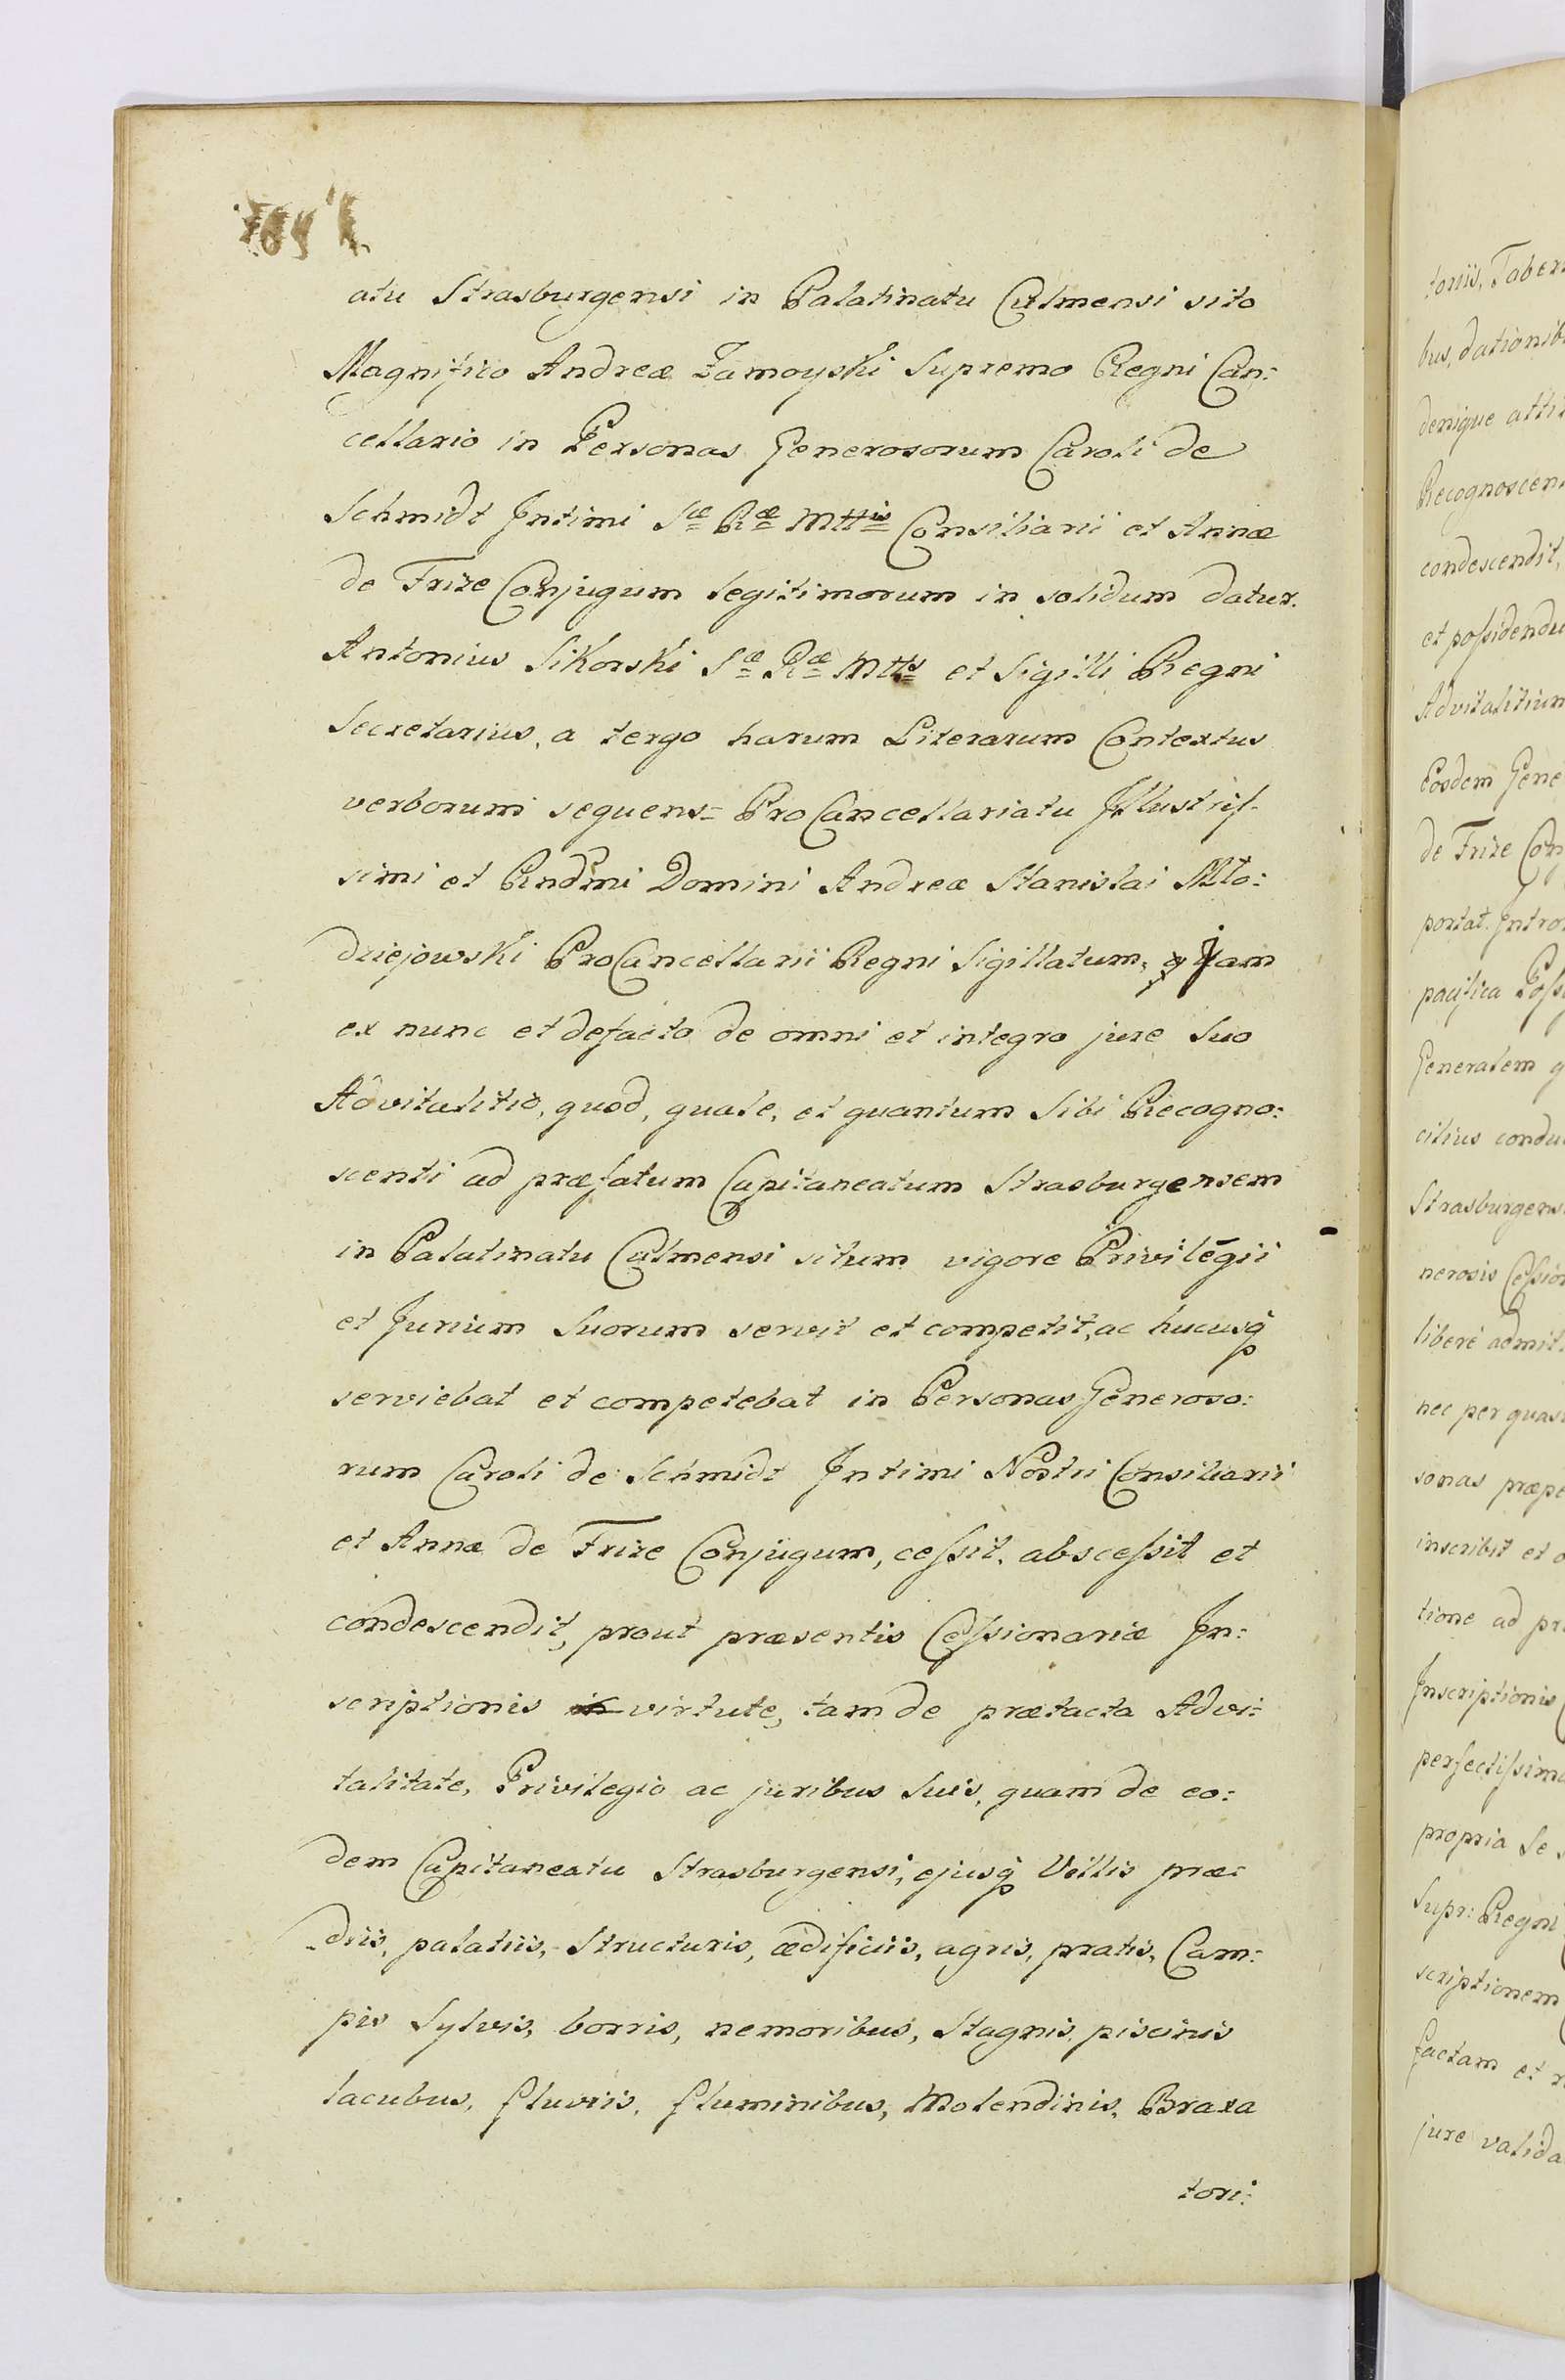 atu Strasburgensi in Palatinatu Culmensi sito
Magnifico Andreæ Zamoyski Supremo Regni Can:
cellario in Personas Generosorum Caroli de
Schmidt Intimi Sæ Ræ Mttis Consiliarii et Annæ
de Frize Conjugum legitimorum in solidum datur.
Antonius Sikorski Sæ Ræ Mtts et Sigilli Regni
Secretarius, a tergo harum Literarum Contextus
verborum sequens= ProCancellariatu Illustriſ-
simi et Rndmi Domini Andreæ Stanislai Mło:
dziejowski ProCancellarii Regni Sigillatum, jam
ex nunc et defacto de omni et integro jure Suo
Advitalitio, quod, quale, et quantum Sibi Recogno:
scenti ad præfatum Capitaneatum Strasburgensem
in Palatinatu Culmensi situm vigore Privilegii
et Jurium Suorum servit et competit, ac hucusq
serviebat et competebat in Personas Generoso:
rum Caroli de Schmidt Intimi Nostri Consiliarii
et Annæ de Frize Conjugum, ceſsit, absceſsit et
condescendit, prout præsentis Ceſsionariæ In:
scriptionis virtute, tam de prætacta Advi:
talitate, Privilegio ac juribus Suis, quam de eo:
dem Capitaneatu Strasburgensi, ejusq Villis præ:
diis, palatiis, Structuris, ædificiis, agris, pratis, Cam:
pis Sylvis, borris, nemoribus, Stagnis, piscinis
lacubus, fluviis, fluminibus, Molendinis, Braxa
tori:
toriis, Tabern
bus, dationib
denique atti
Recognoscen
condescendit,
et poſsidendu
Advitalitium
Eosdem Gene
de Frize Con
portat. Intro
pacifica Poſs
Generalem q
citius condu
Strasburgens
nerosis Ceſsion
liberè admit
nec per quas
sonas præpe
inscribit et o
tione ad pr
Inscriptionis
perfectiſsim
propria Se
Supr: Regni
scriptionem
factam et r
jure valida